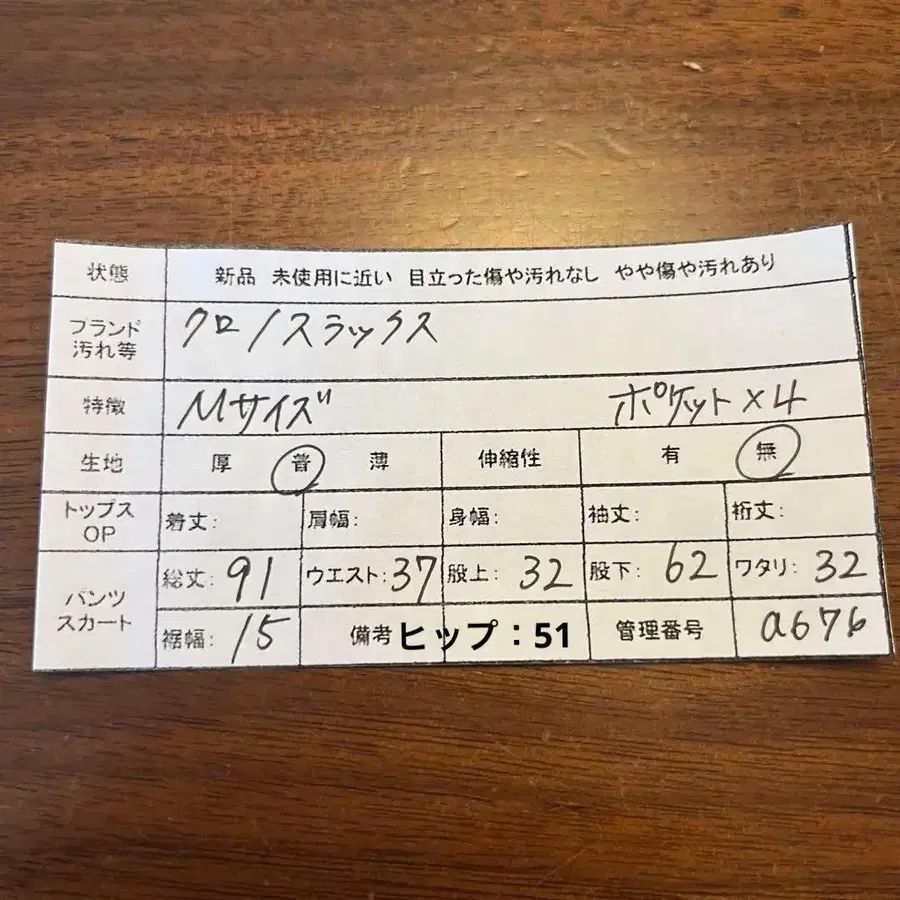 状態 新品 未使用に近い 目立った傷や汚れなし やや傷や汚れあり
ブランド 汚れ等 クロ/スラックス
特徴 Mサイズ ポケット×4
生地 厚 普 薄 伸縮性 有 無
トップス OP 着丈: 肩幅: 身幅: 袖丈: 裄丈:
パンツ スカート 総丈: 91 ウエスト: 37 股上: 32 股下: 62 ワタリ: 32
裾幅: 15 備考 ヒップ：51 管理番号 a676